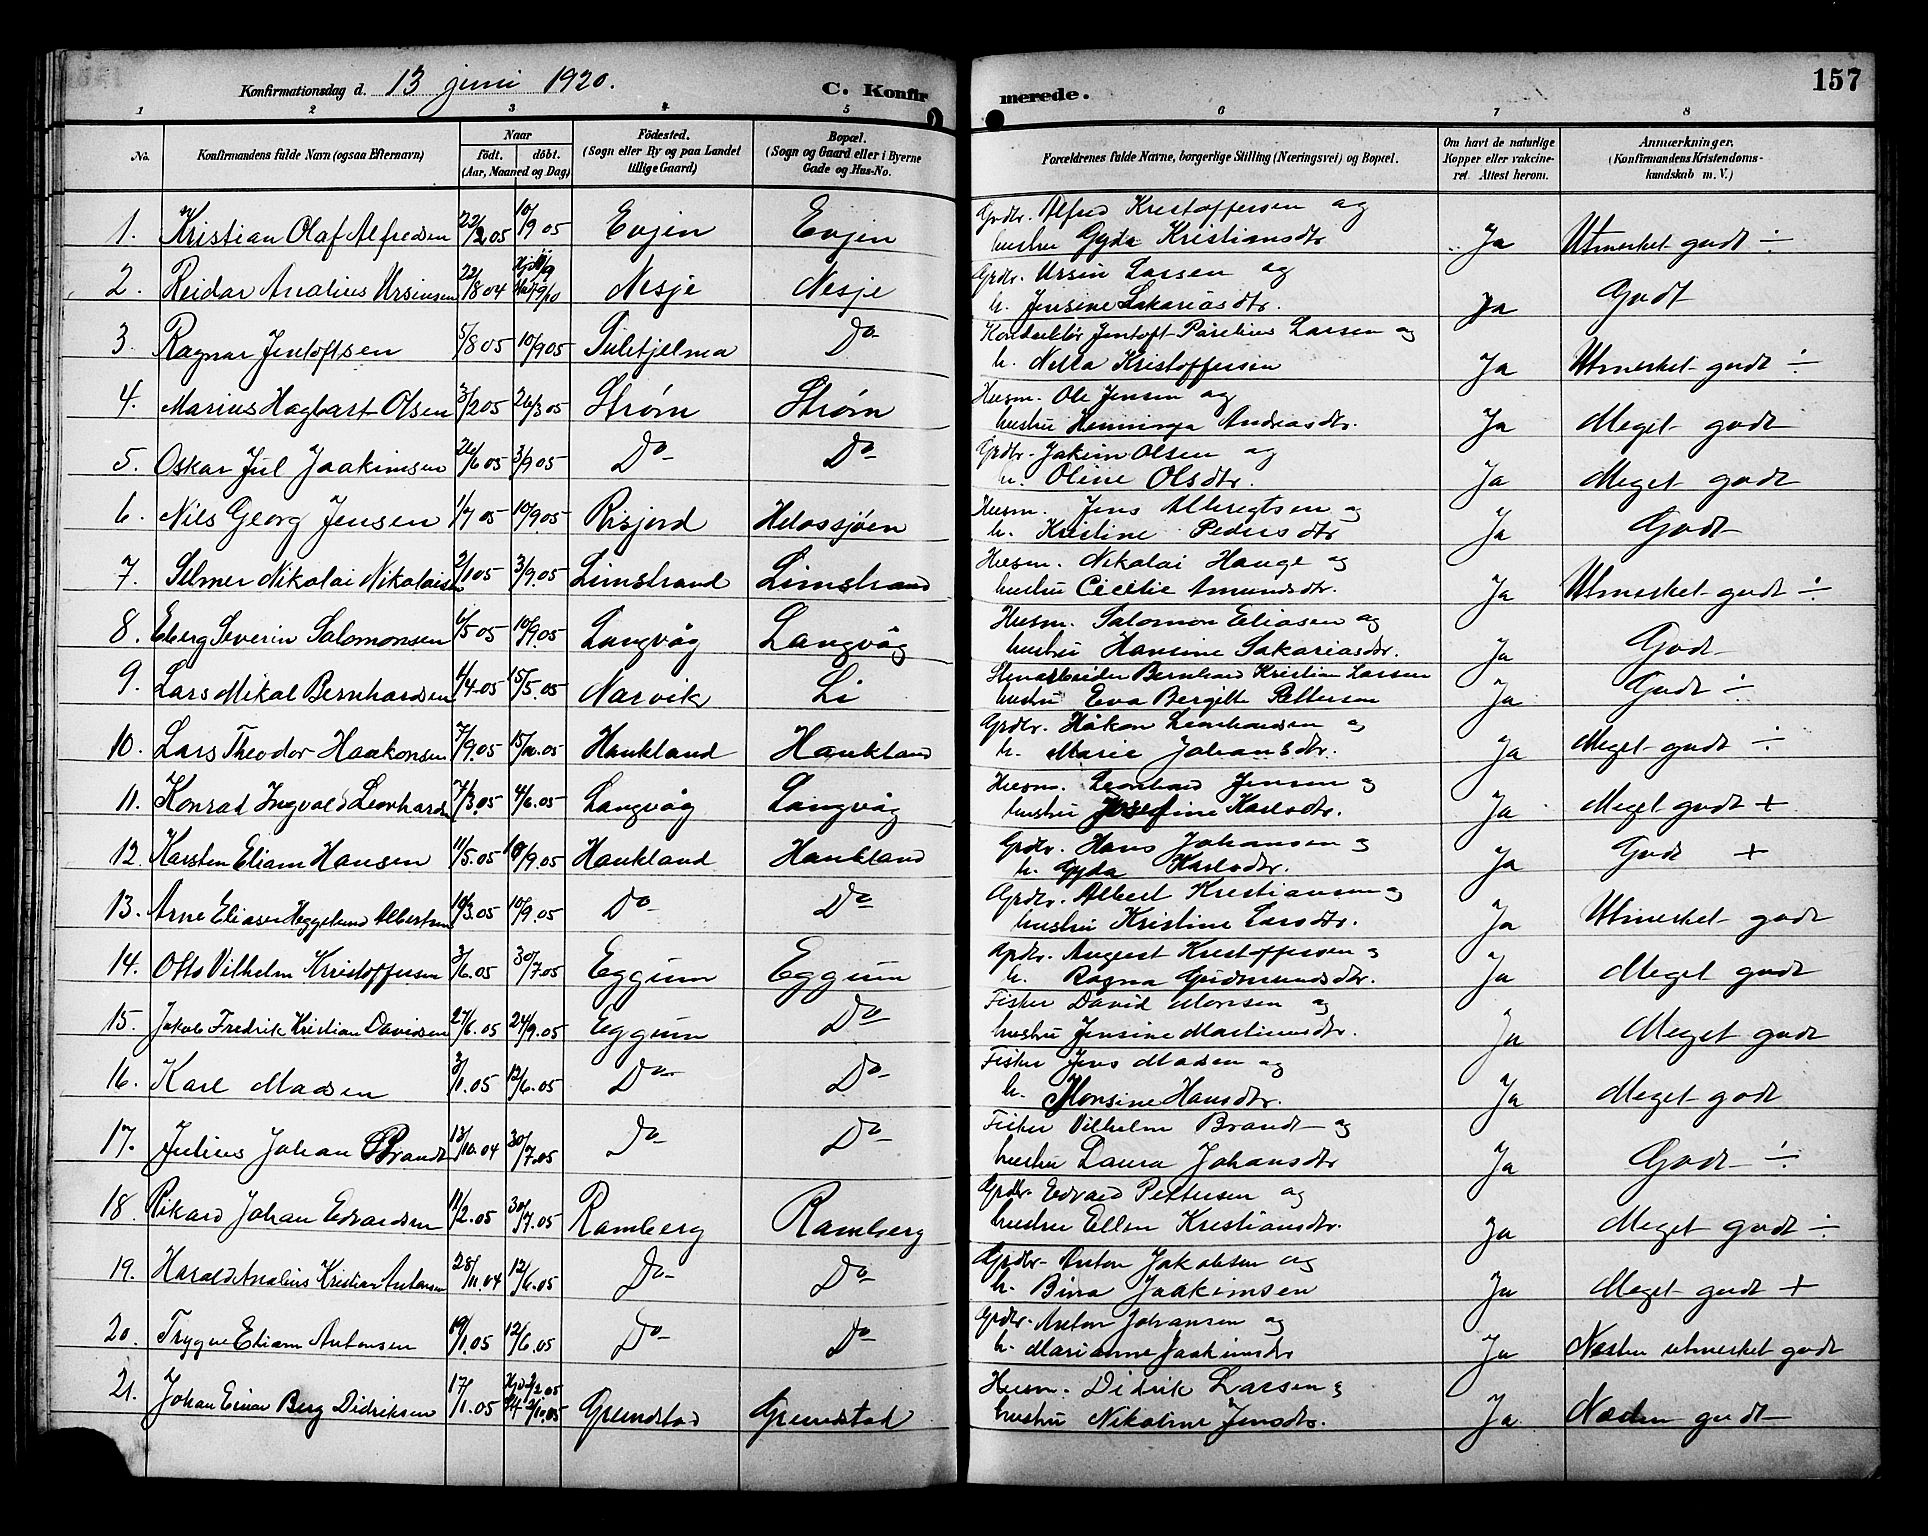 Konfirmationsdag d. 13 juni 1920.
C. Konfirmerede.
157
1 2 3 4 5 6 7 8
No.
Konfirmandens fulde Navn (ogsaa Efternavn)
Naar
födt. döbt.
(Aar, Maaned og Dag)
Födested.
(Sogn eller By og paa Landet
tillige Gaard)
Bopæl.
(Sogn og Gaard eller i Byerne
Gade og Hus-No.
Forældrenes fulde Navne, borgerlige Stilling (Næringsvei) og Bopæl.
Om havt de naturlige
Kopper eller vakcine-
ret. Attest herom.
Anmærkninger.
(Konfirmandens Kristendoms-
kundskab m. V.)
1. Kristian Olaf Alfredsen 10/9 05 Evjen Evjen
Grdbr. Alfred Kristoffersen og
hustru Gyda Kristiansdtr Ja Utmerket godt ÷
2. Reidar Analius Ursinsen 22/8 04 Nesje Nesje
Grdbr. Ursin Larsen og
h. Jensine Sakariasdtr. Ja Godt
3. Ragnar Jentoftsen 5/8 05 10/9 05 Sulitjelma Do
Jentoft Parelius Larsen og
h. Nella Kristoffersen Ja Utmerket godt ÷
4. Marius Hagbart Olsen 3/2 05 26/3 05 Strøm Strøm
Husm. Ole Jensen og
hustru Henninga Andreasdtr. Ja Meget godt
5. Oskar Jul Joakimsen 26/6 05 3/9 05 Do Do
Grdbr. Jakim Olsen og
h. Oline Olsdtr. Ja Meget godt
6. Nils Georg Jensen 1/7 05 10/9 05 Risjord Helossjøen
Husm. Jens Albregtsen og
h. Kristine Pedersdtr Ja Godt
7. Selmer Nikolai Nikolaisen 2/1 05 3/9.05 Limstrand Limstrand
Husm. Nikolai Hauge og
hustru Cecilie Amundsdtr. Ja Utmerket godt ÷
8. Eberg Severin Salomonsen 6/5 05 10/9.05 Langvåg Langvåg
Husm. Salomon Eliasen og
hustru Hansine Sakariasdtr. Ja Godt
9. Lars Mikal Bernhardsen 4.05 15/5.05 Narvik Li
Stenarbeider Bernhard Kristian Larsen
hustru Eva Bergitte Pettersen Ja Godt ÷
10. Lars Theodor Haakonsen 7/9.05 15/10.05 Haukland Haukland
Grdbr. Håkon Leonhardsen og
h. Marie Johansdtr. Ja Meget godt ÷
11. Konrad Ingvald Leonhardsen 7/3.05 4/6.05 Langvåg Langvåg
Husm. Leonhard Jensen og
hustru Josefine Karlsdtr. Ja Meget godt +
12. Karsten Eliam Hansen 11/5.05 10/9.05 Haukland Haukland
Grdbr. Hans Johansen og
h. Gyda Karlsdtr. Ja Godt +
13. Arne Eliaser Heggelund Albertsen 10/3.05 10/9.05 Do Do
Grdbr. Albert Kristiansen og
hustru Kristine Larsdtr. Ja Utmerket godt
14. Otto Vilhelm Kristoffersen 3/6.05 30/7.05 Eggum Eggum
Grdbr. August Kristoffersen og
h. Ragna Gudmundsdtr. Ja Meget godt
15. Jakob Fredrik Kristian Davidsen 27/6.05 24/9.05 Eggum Do
Fisker David Monsen og
hustru Jensine Martinusdtr. Ja Meget godt
16. Karl Madsen 3/1.05 12/6.05 Do Do
Fisker Jens Madsen og
h. Monsine Hansdtr. Ja Meget godt
17. Julius Johan Brandt 13/10.04 30/7.05 Do Do
Fisker Vilhelm Brandt og
hustru Laura Johansdtr Ja Godt ÷
18. Rikard Johan Edvardsen 11/2.05 30/7.05 Ramberg Ramberg
Grdbr. Edvard Pettersen og
hustru Ellen Kristiansdtr. Ja Meget godt ÷
19. Harald Analius Kristian Antonsen 28/11.04 12/6.05 Do Do
Grdbr. Anton Jakobsen og
h. Bina Joakimsen Ja Meget godt +
20. Trygve Eliam Antonsen 19/1.05 12/6.05 Do Do
Grdbr. Anton Johansen og
h. Marianne Joakimsdtr Ja Næsten utmerket godt
21. Johan Einar Berg Didriksen 17/1.05 Grundstad Grundstad
Husm. Didrik Larsen og
hustru Nikoline Jensdtr. Ja Næsten godt